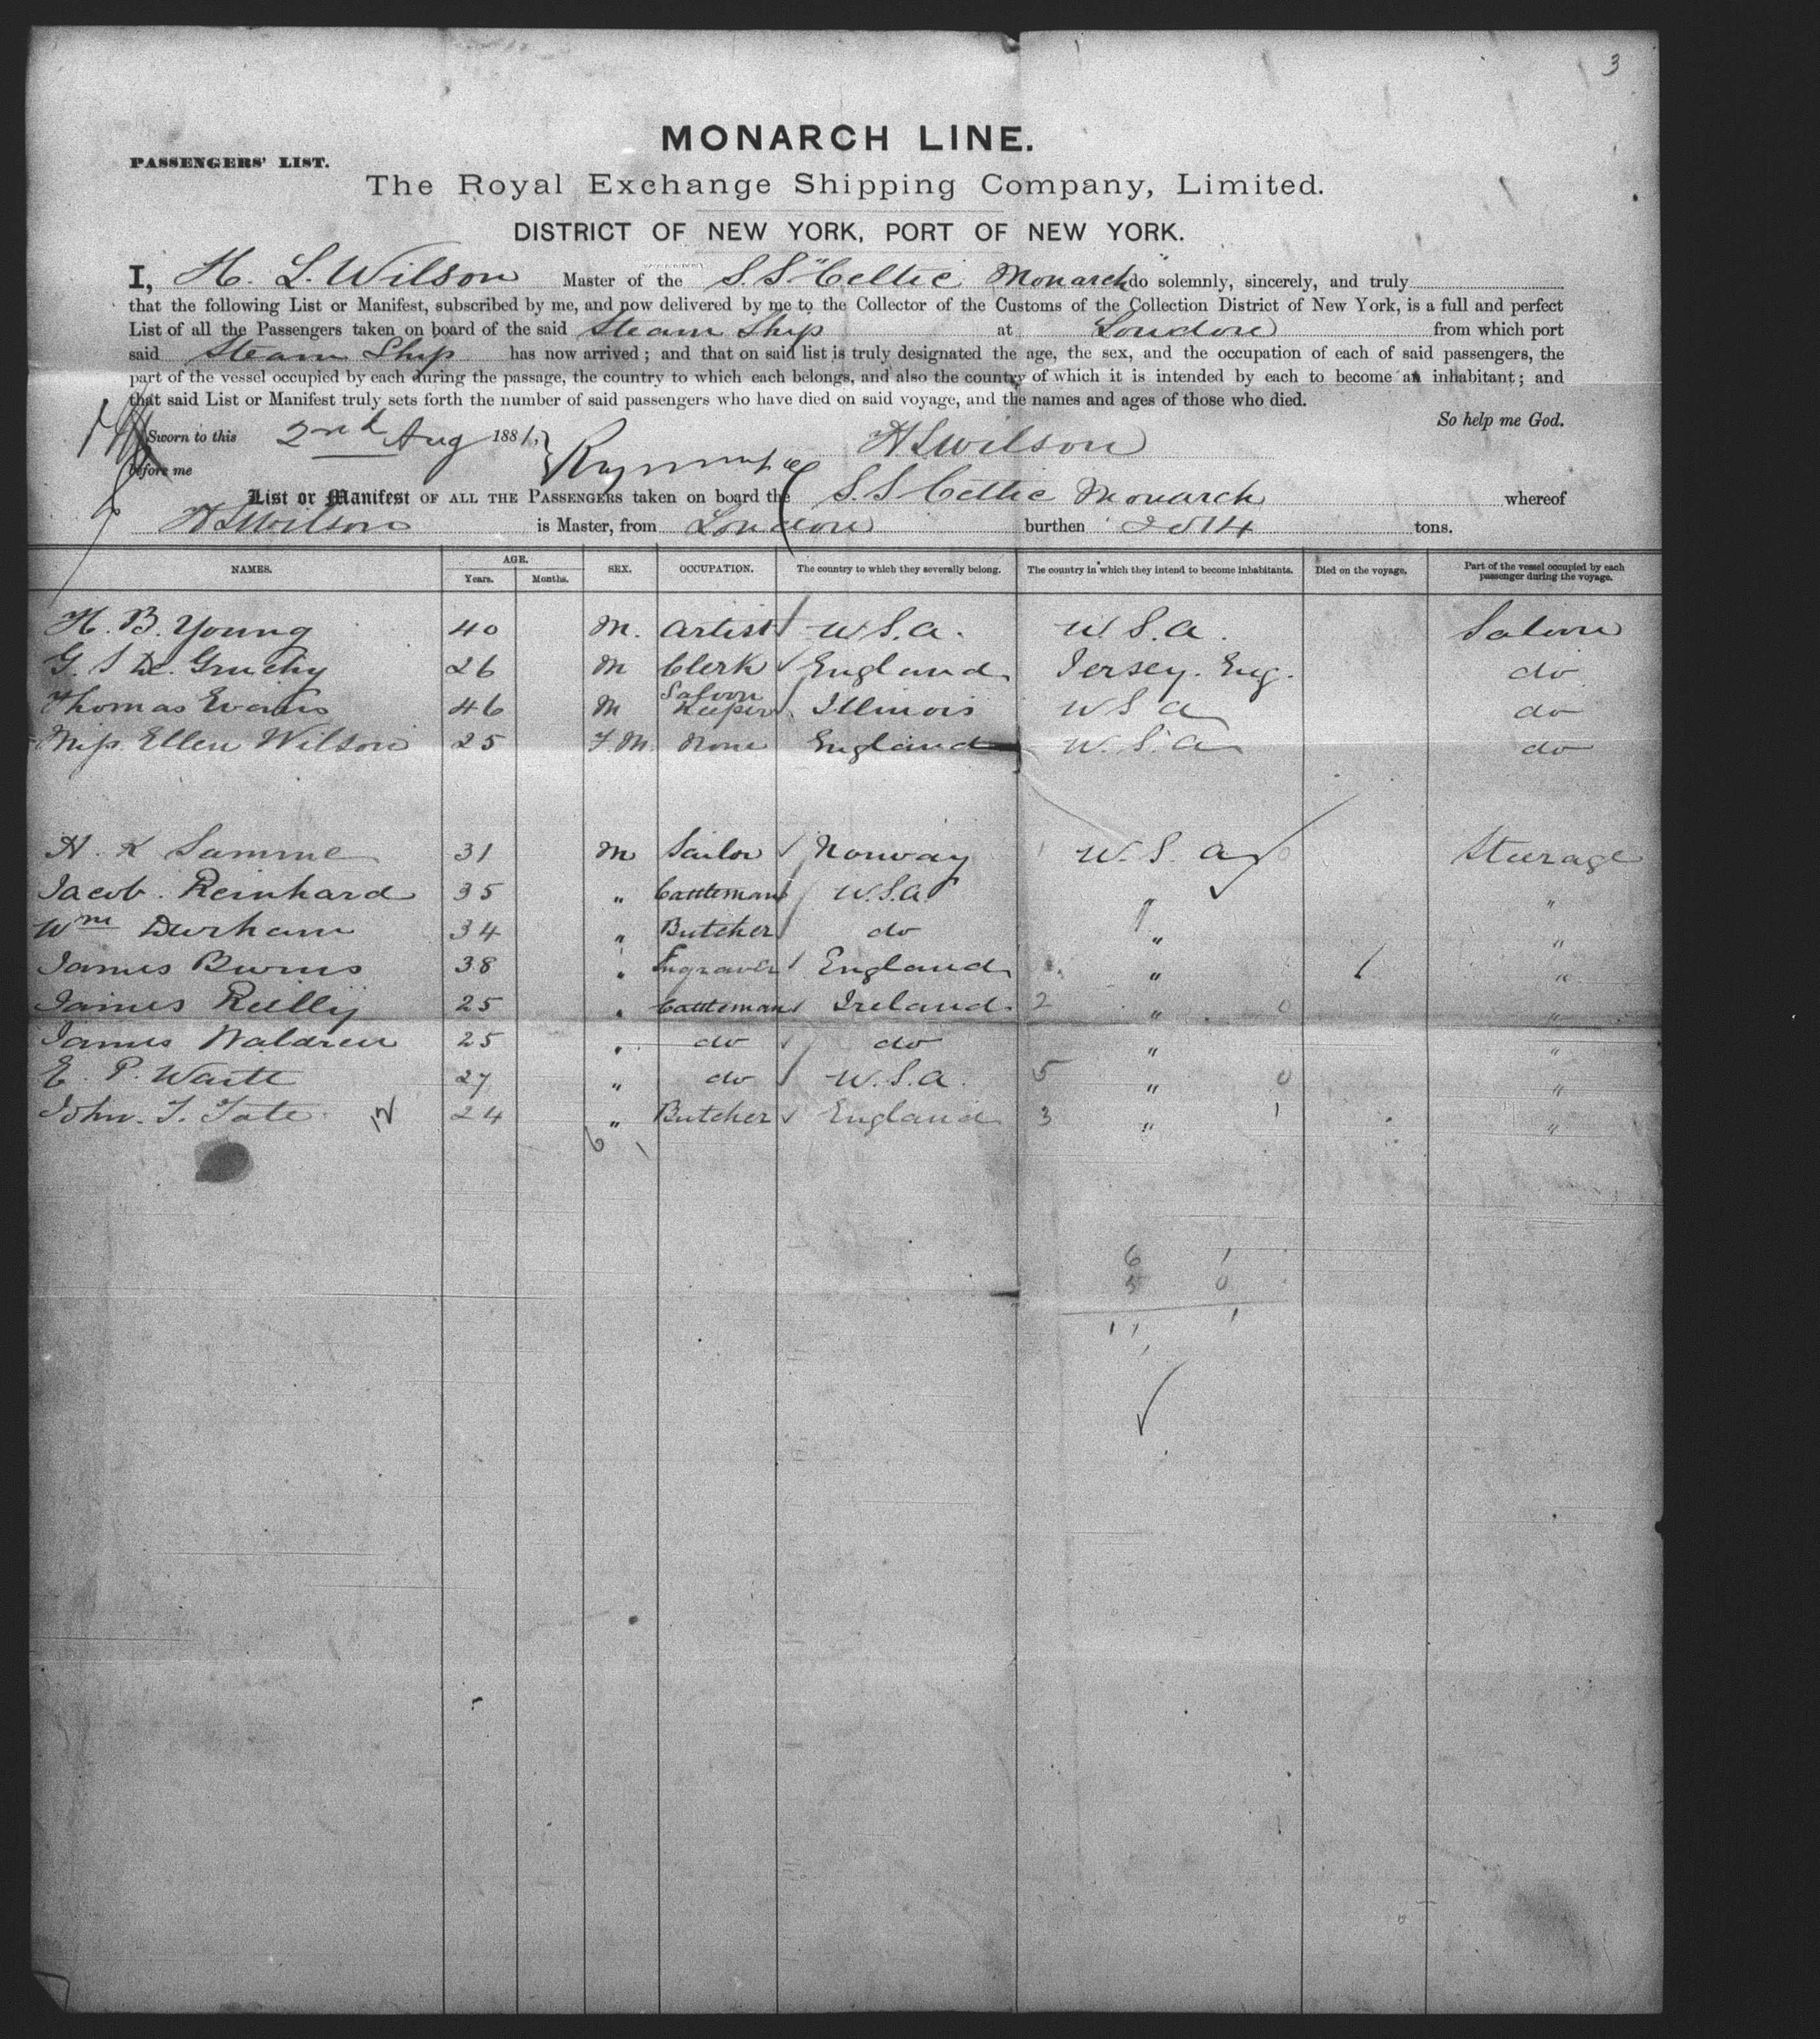 3
MONARCH LINE.
PASSENGERS' LIST.
The Royal Exchange Shipping Company, Limited.
DISTRICT OF NEW YORK, PORT OF NEW YORK.
I, H. L. Wilson Master of the S.S. "Celtic Monarch do solemnly, sincerely, and truly
that the following List or Manifest, subscribed by me, and now delivered by me to the Collector of the Customs of the Collection District of New York, is a full and perfect
List of all the Passengers taken on board of the said Steam Ship at London from which port
said Steam Ship has now arrived; and that on said list is truly designated the age, the sex, and the occupation of each of said passengers, the
part of the vessel occupied by each during the passage, the country to which each belongs, and also the country of which it is intended by each to become an inhabitant; and
that said List or Manifest truly sets forth the number of said passengers who have died on said voyage, and the names and ages of those who died.
So help me God.
Sworn to this 2nd Aug 1881, HLWilson
before me
List or Manifest OF ALL THE PASSENGERS taken on board the S.S Celtic Monarch whereof
HLWilson is Master, from London burthen tons.
NAMES. AGE. Years. Months. SEX. OCCUPATION. The country to which they severally belong. The country in which they intend to become inhabitants. Died on the voyage. Part of the vessel occupied by each passenger during the voyage.
H. B. Young 40 M. Artist U.S.A. U.S.A. Saloon
G. S De. Gruchy 26 M Clerk England Jersey. Eng. do
Thomas Evans 46 M Saloon Keeper Illinois U S A do
Miss Ellen Wilson 25 F.M. None England U.S.A do
H. K Samme 31 M Sailor Norway 1 U.S.A 0 Steerage
Jacob. Reinhard 35 " Cattleman U.S.A " "
Wm Durham 34 " Butcher do " "
James Burns 38 " Engraver England " "
James Reilly 25 " Cattleman Ireland 2 " 0 "
James Waldren 25 " do do " "
E. P. Waitt 27 " do U.S.A. 5 " 0 "
John. T. Tate 12 24 " Butcher England 3 " 1 "
6 1
6 1
5 0
11 1